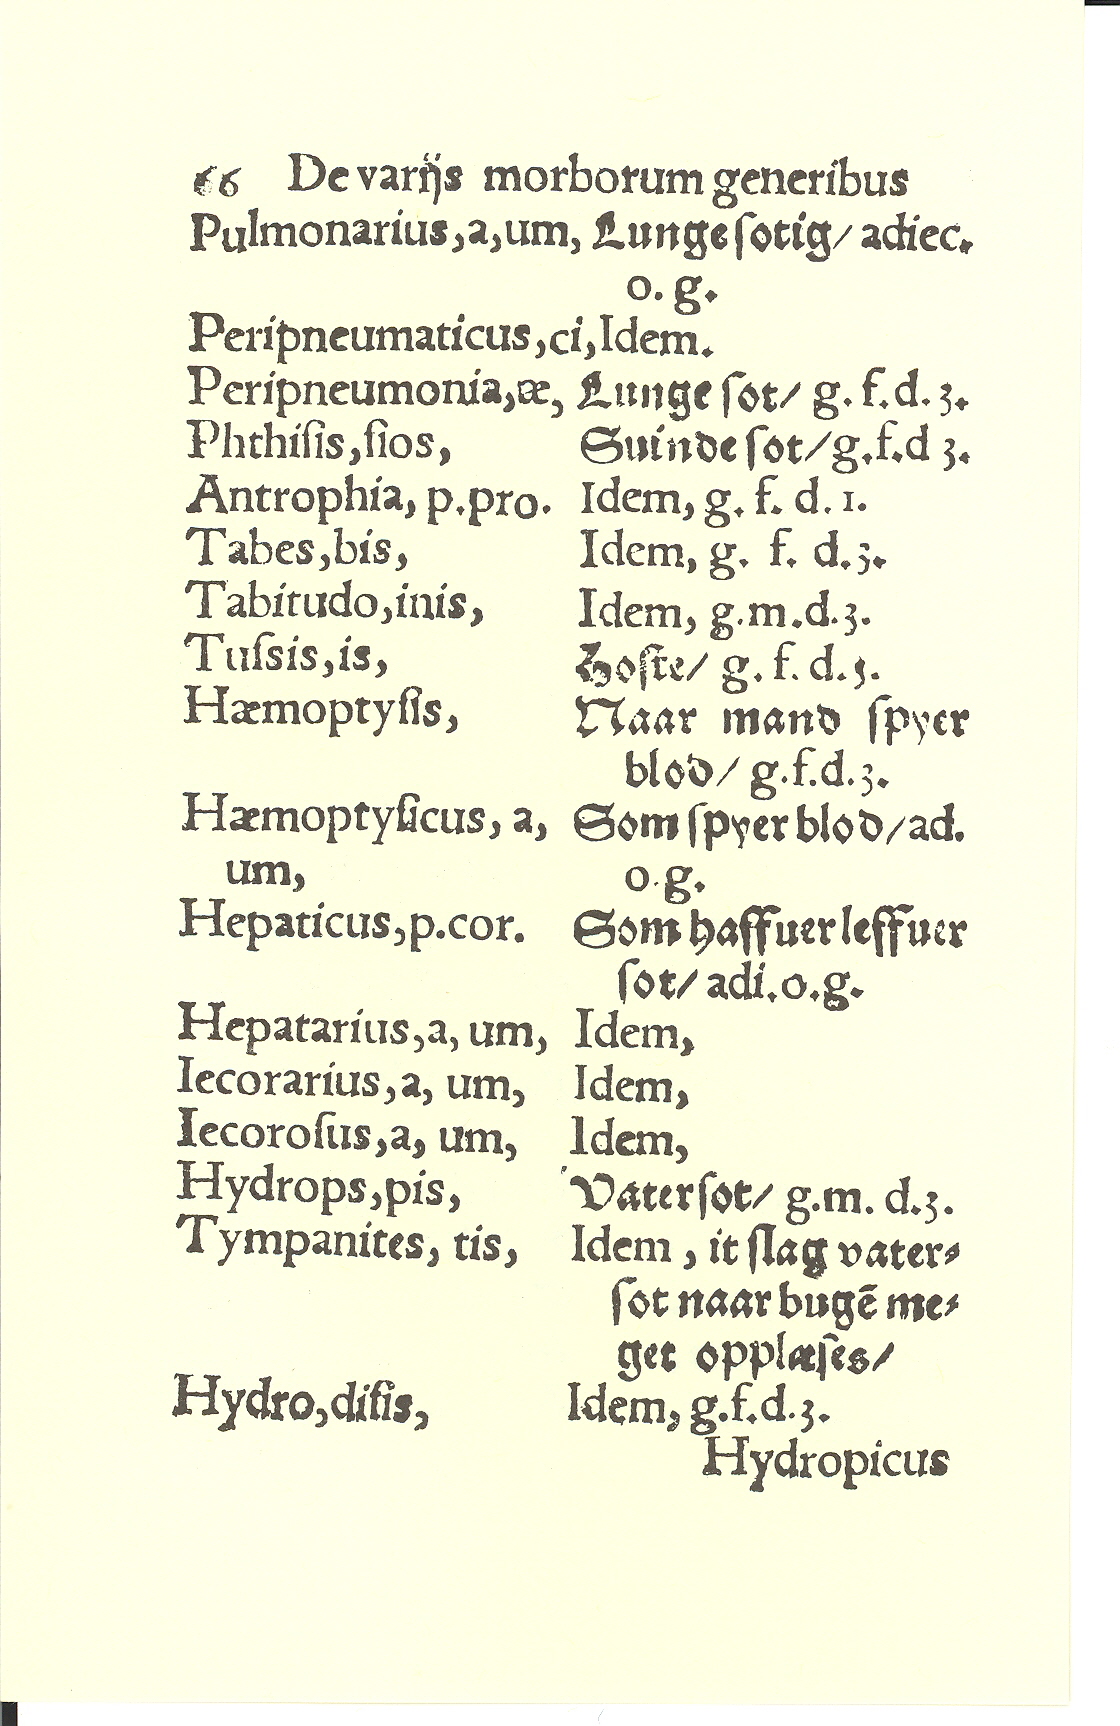 66 De varijs morborum generibus
Pulmonarius,a,um, Lunge ſotig/ adiec.
o. g.
Peripneumaticus,ci,Idem.
Peripneumonia,æ, Lunge ſot/ g. f.d. 3.
Phthiſis,ſios, Suinde ſot/g.f.d 3.
Antrophia, p.pro. Idem, g. f. d. 1.
Tabes,bis, Idem, g. f. d.3.
Tabitudo,inis, Idem, g.m.d.3.
Tuſsis,is, Hoſte/ g. f. d.3.
Hæmoptyſis, Naar mand ſpyer
blod/ g.f.d.3.
Hæmoptyſicus, a, Som ſpyer blod/ad.
um, o.g.
Hepaticus,p.cor. Som haffuer leffuer
ſot/ adi.o.g.
Hepatarius,a, um, Idem,
Iecorarius,a, um, Idem,
Iecoroſus,a, um, Idem,
Hydrops,pis, Vaterſot/ g.m. d.3.
Tympanites, tis, Idem , it ſlag vater⸗
ſot naar bugē me⸗
get opplæſes/
Hydro,diſis, Idem, g.f.d.3.
Hydropicus